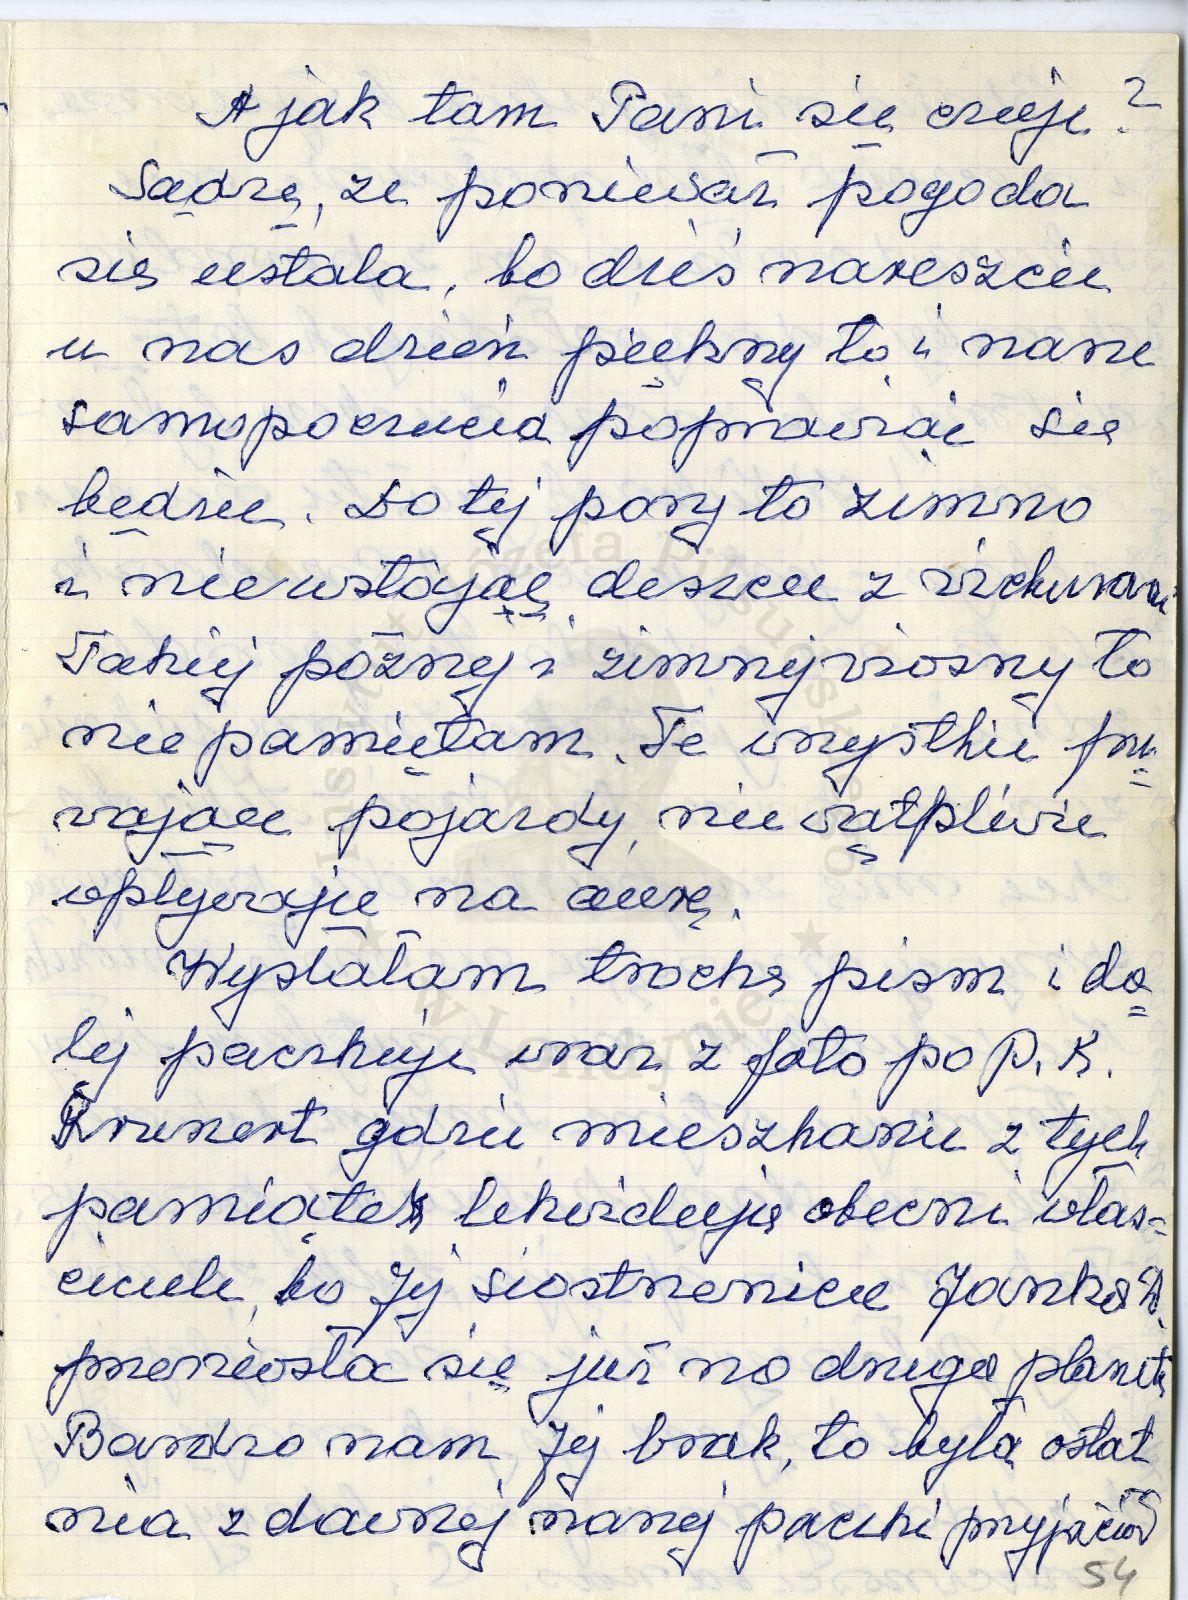 A jak tam Pani się czuje?
Sądzę, że ponieważ pogoda
się ustala, bo dziś nareszcie
u nas dzień piękny to i nasze
samopoczucia poprawiać się
będzie. Do tej pory to zimno
i nieustające deszcze z wichurami
Takiej późnej i zimnej wiosny to
nie pamiętam. Te wszystkie pru=
wające pojazdy, niewątpliwie
wpływają na aurę.
Wysłałam trochę pism i da=
lej paczkuję wraz z foto po P. K.
gdzie mieszkanie z tych
pamiątek likwidują obecni właś=
ciciele, bo Jej siostrzenica Janka D.
przeniosła się już na drugą planetę
Bardzo nam Jej brak, to była ostat
nia z dawnej naszej paczki przyjaciół
54
Instytut Józefa Piłsudskiego
w Londynie